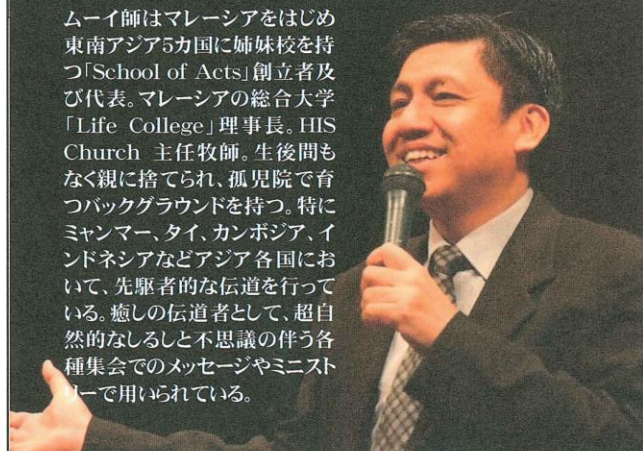 ムーイ師はマレーシアをはじめ
東南アジア5カ国に姉妹校を持
つ「School of Acts」創立者及
び代表。マレーシアの総合大学
「Life College」理事長。HIS
Church 主任牧師。生後間も
なく親に捨てられ、孤児院で育
つバックグラウンドを持つ。特に
ミャンマー、タイ、カンボジア、イ
ンドネシアなどアジア各国にお
いて、先駆者的な伝道を行って
いる。癒しの伝道者として、超自
然的なしるしと不思議の伴う各
種集会でのメッセージやミニスト
リーで用いられている。